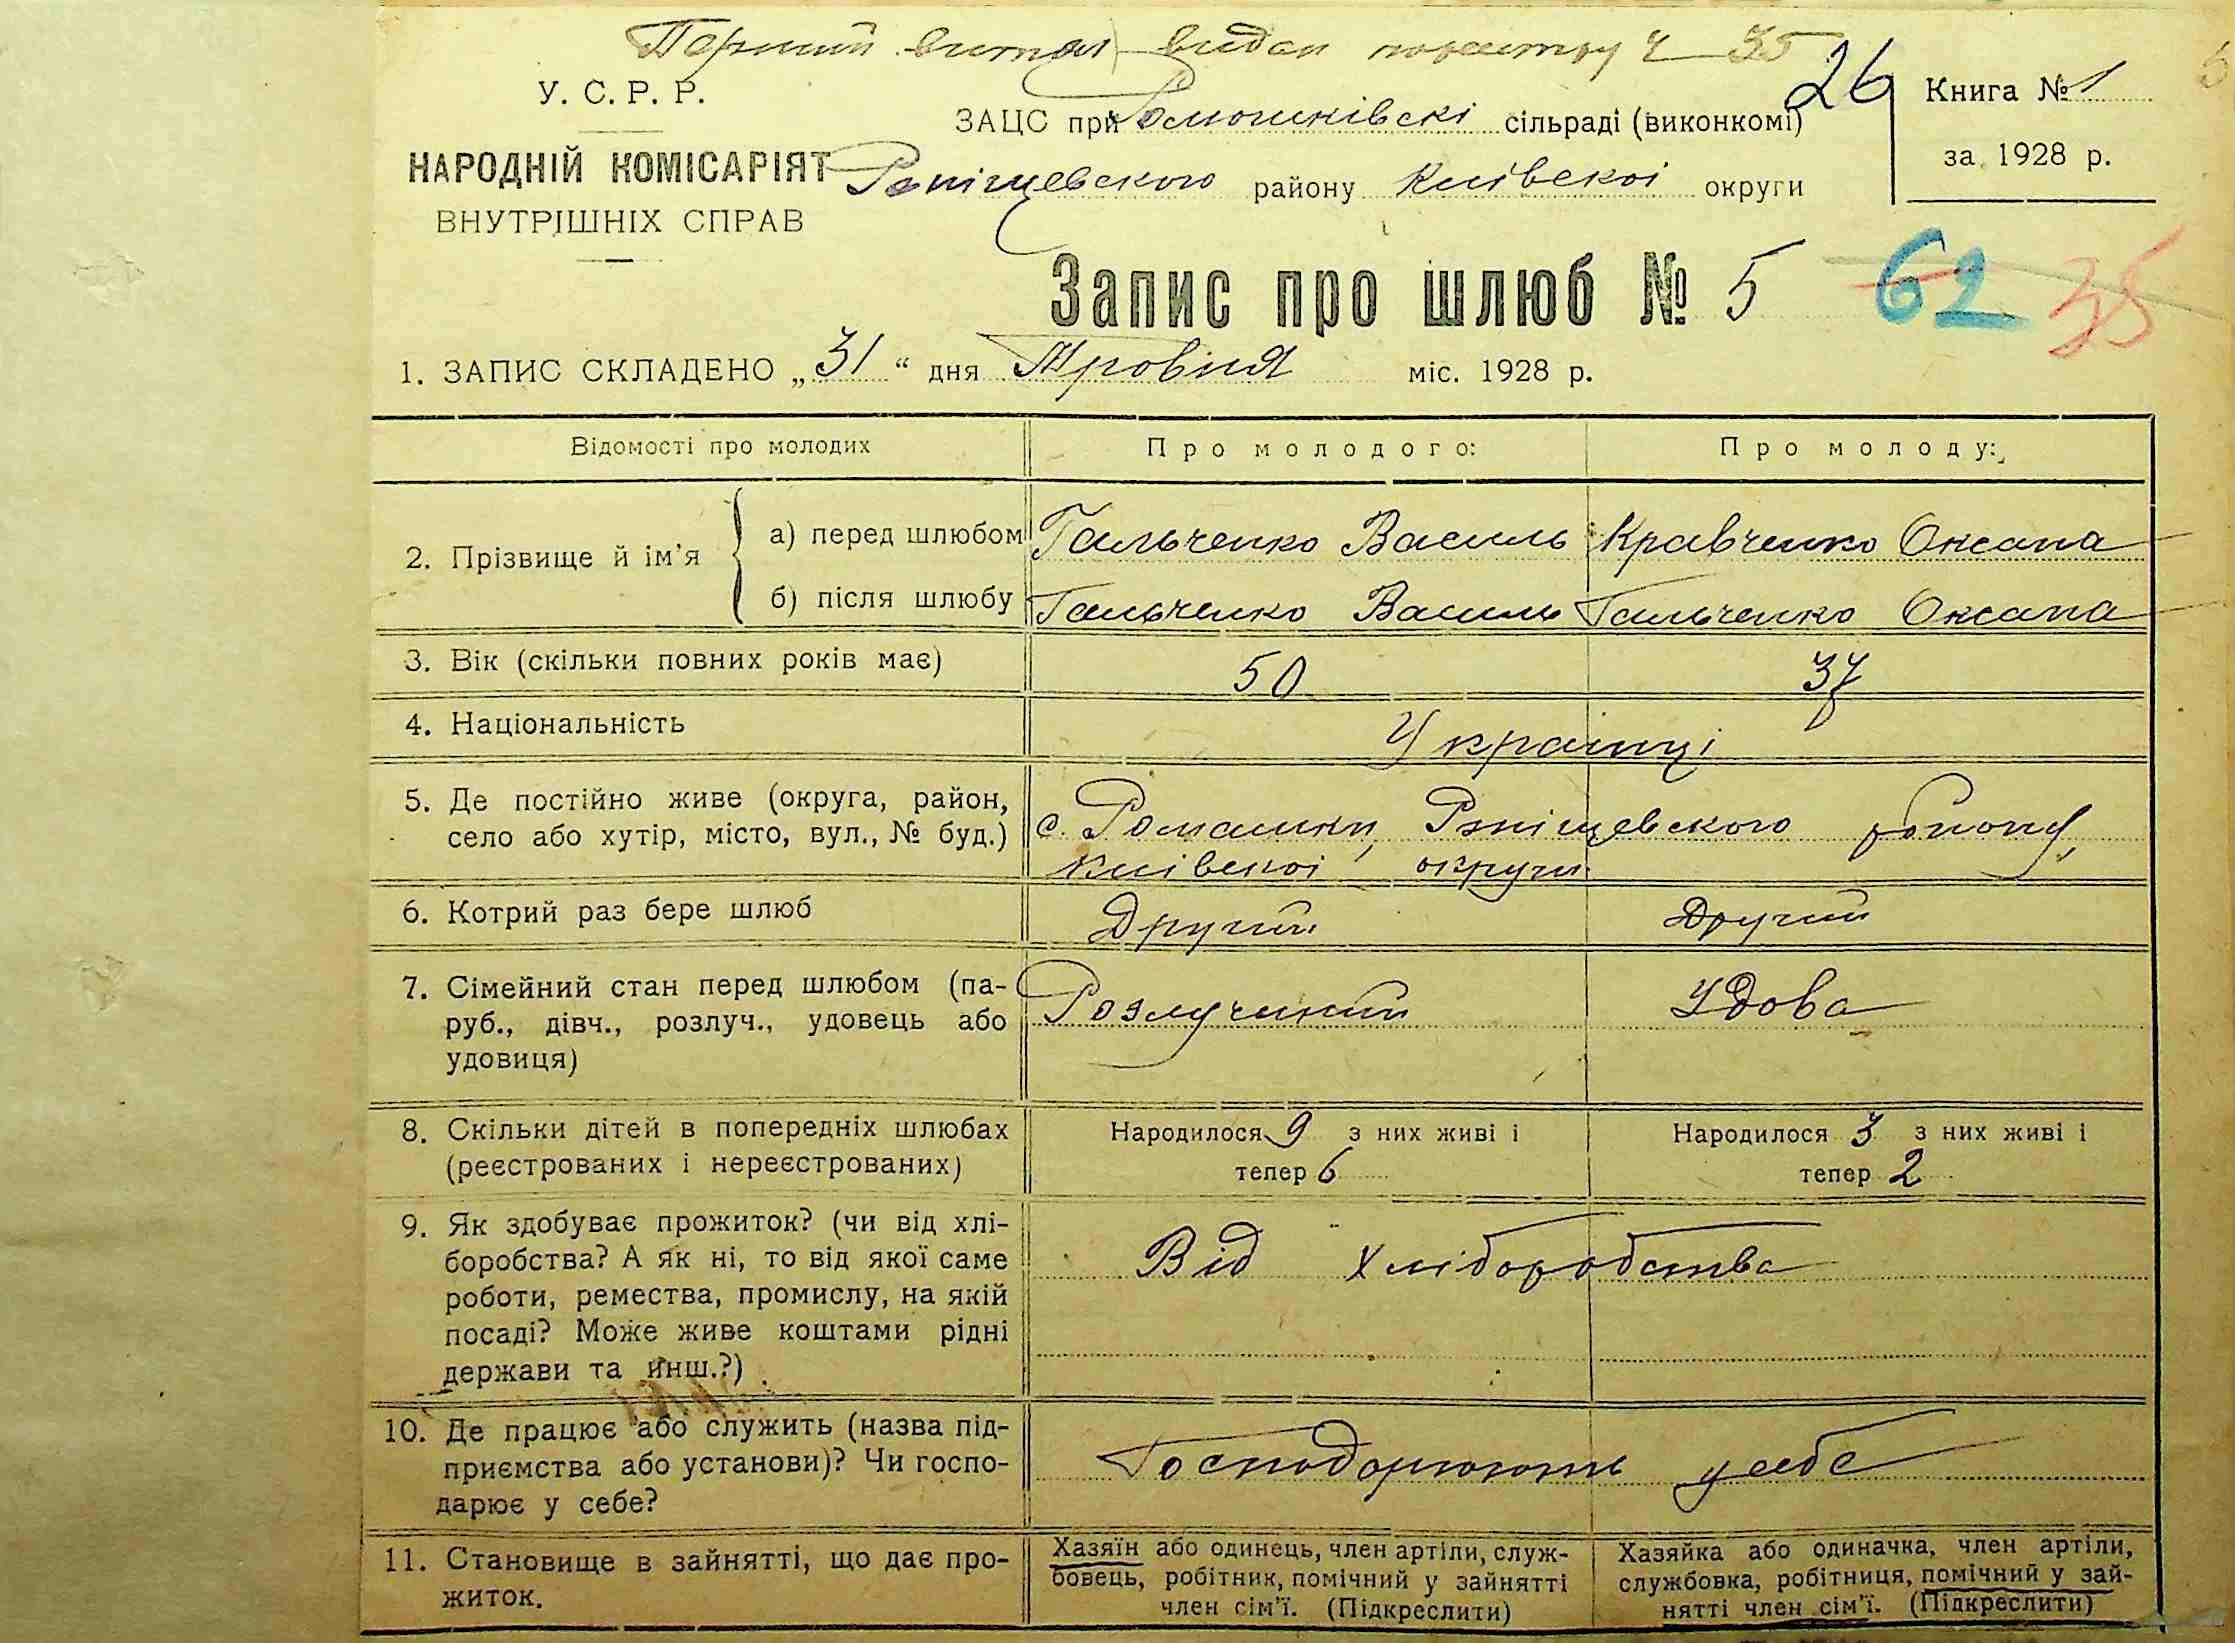 Перший витяг видан по реєстру Ч 35
У. С. Р. Р.
НАРОДНІЙ КОМІСАРІЯТ
ВНУТРІШНІХ СПРАВ
ЗАЦС при Ромашківскі сільраді (виконкомі)
Рэпіщевского району Київскоі округи
26
Книга № 1
за 1928 р.
Запис про шлюб № 5 62 35
1. ЗАПИС СКЛАДЕНО „31“ дня Тровня міс. 1928 р.
Відомості про молодих Про молодого: Про молоду:
2. Прізвище й ім'я
а) перед шлюбом Гальченко Василь Кравченко Оксана
б) після шлюбу Гальченко Василь Гальченко Оксана
3. Вік (скільки повних років має) 50 37
4. Національність Українці
5. Де постійно живе (округа, район, село або хутір, місто, вул., № буд.)
с. Ромашки, Рэпіщевского району,
Київскоі округи.
6. Котрий раз бере шлюб Другий Другий
7. Сімейний стан перед шлюбом (па-
руб., дівч., розлуч., удовець або
удовиця)
Розлучиний Удова
8. Скільки дітей в попередніх шлюбах
(реєстрованих і нереєстрованих)
Народилося 9 з них живі і
тепер 6
Народилося 3 з них живі і
тепер 2
9. Як здобуває прожиток? (чи від хлі-
боробства? А як ні, то від якої саме
роботи, ремества, промислу, на якій
посаді? Може живе коштами рідні
держави та инш.?)
Від Хліборобства
10. Де працює або служить (назва під-
приємства або установи)? Чи госпо-
дарює у себе?
Господорюють у себе
11. Становище в зайнятті, що дає про-
житок.
Хазяїн або одинець, член артіли, служ-
бовець, робітник, помічний у зайнятті
член сім'ї. (Підкреслити)
Хазяйка або одиначка, член артіли,
службовка, робітниця, помічний у зай-
нятті член сім'ї. (Підкреслити)